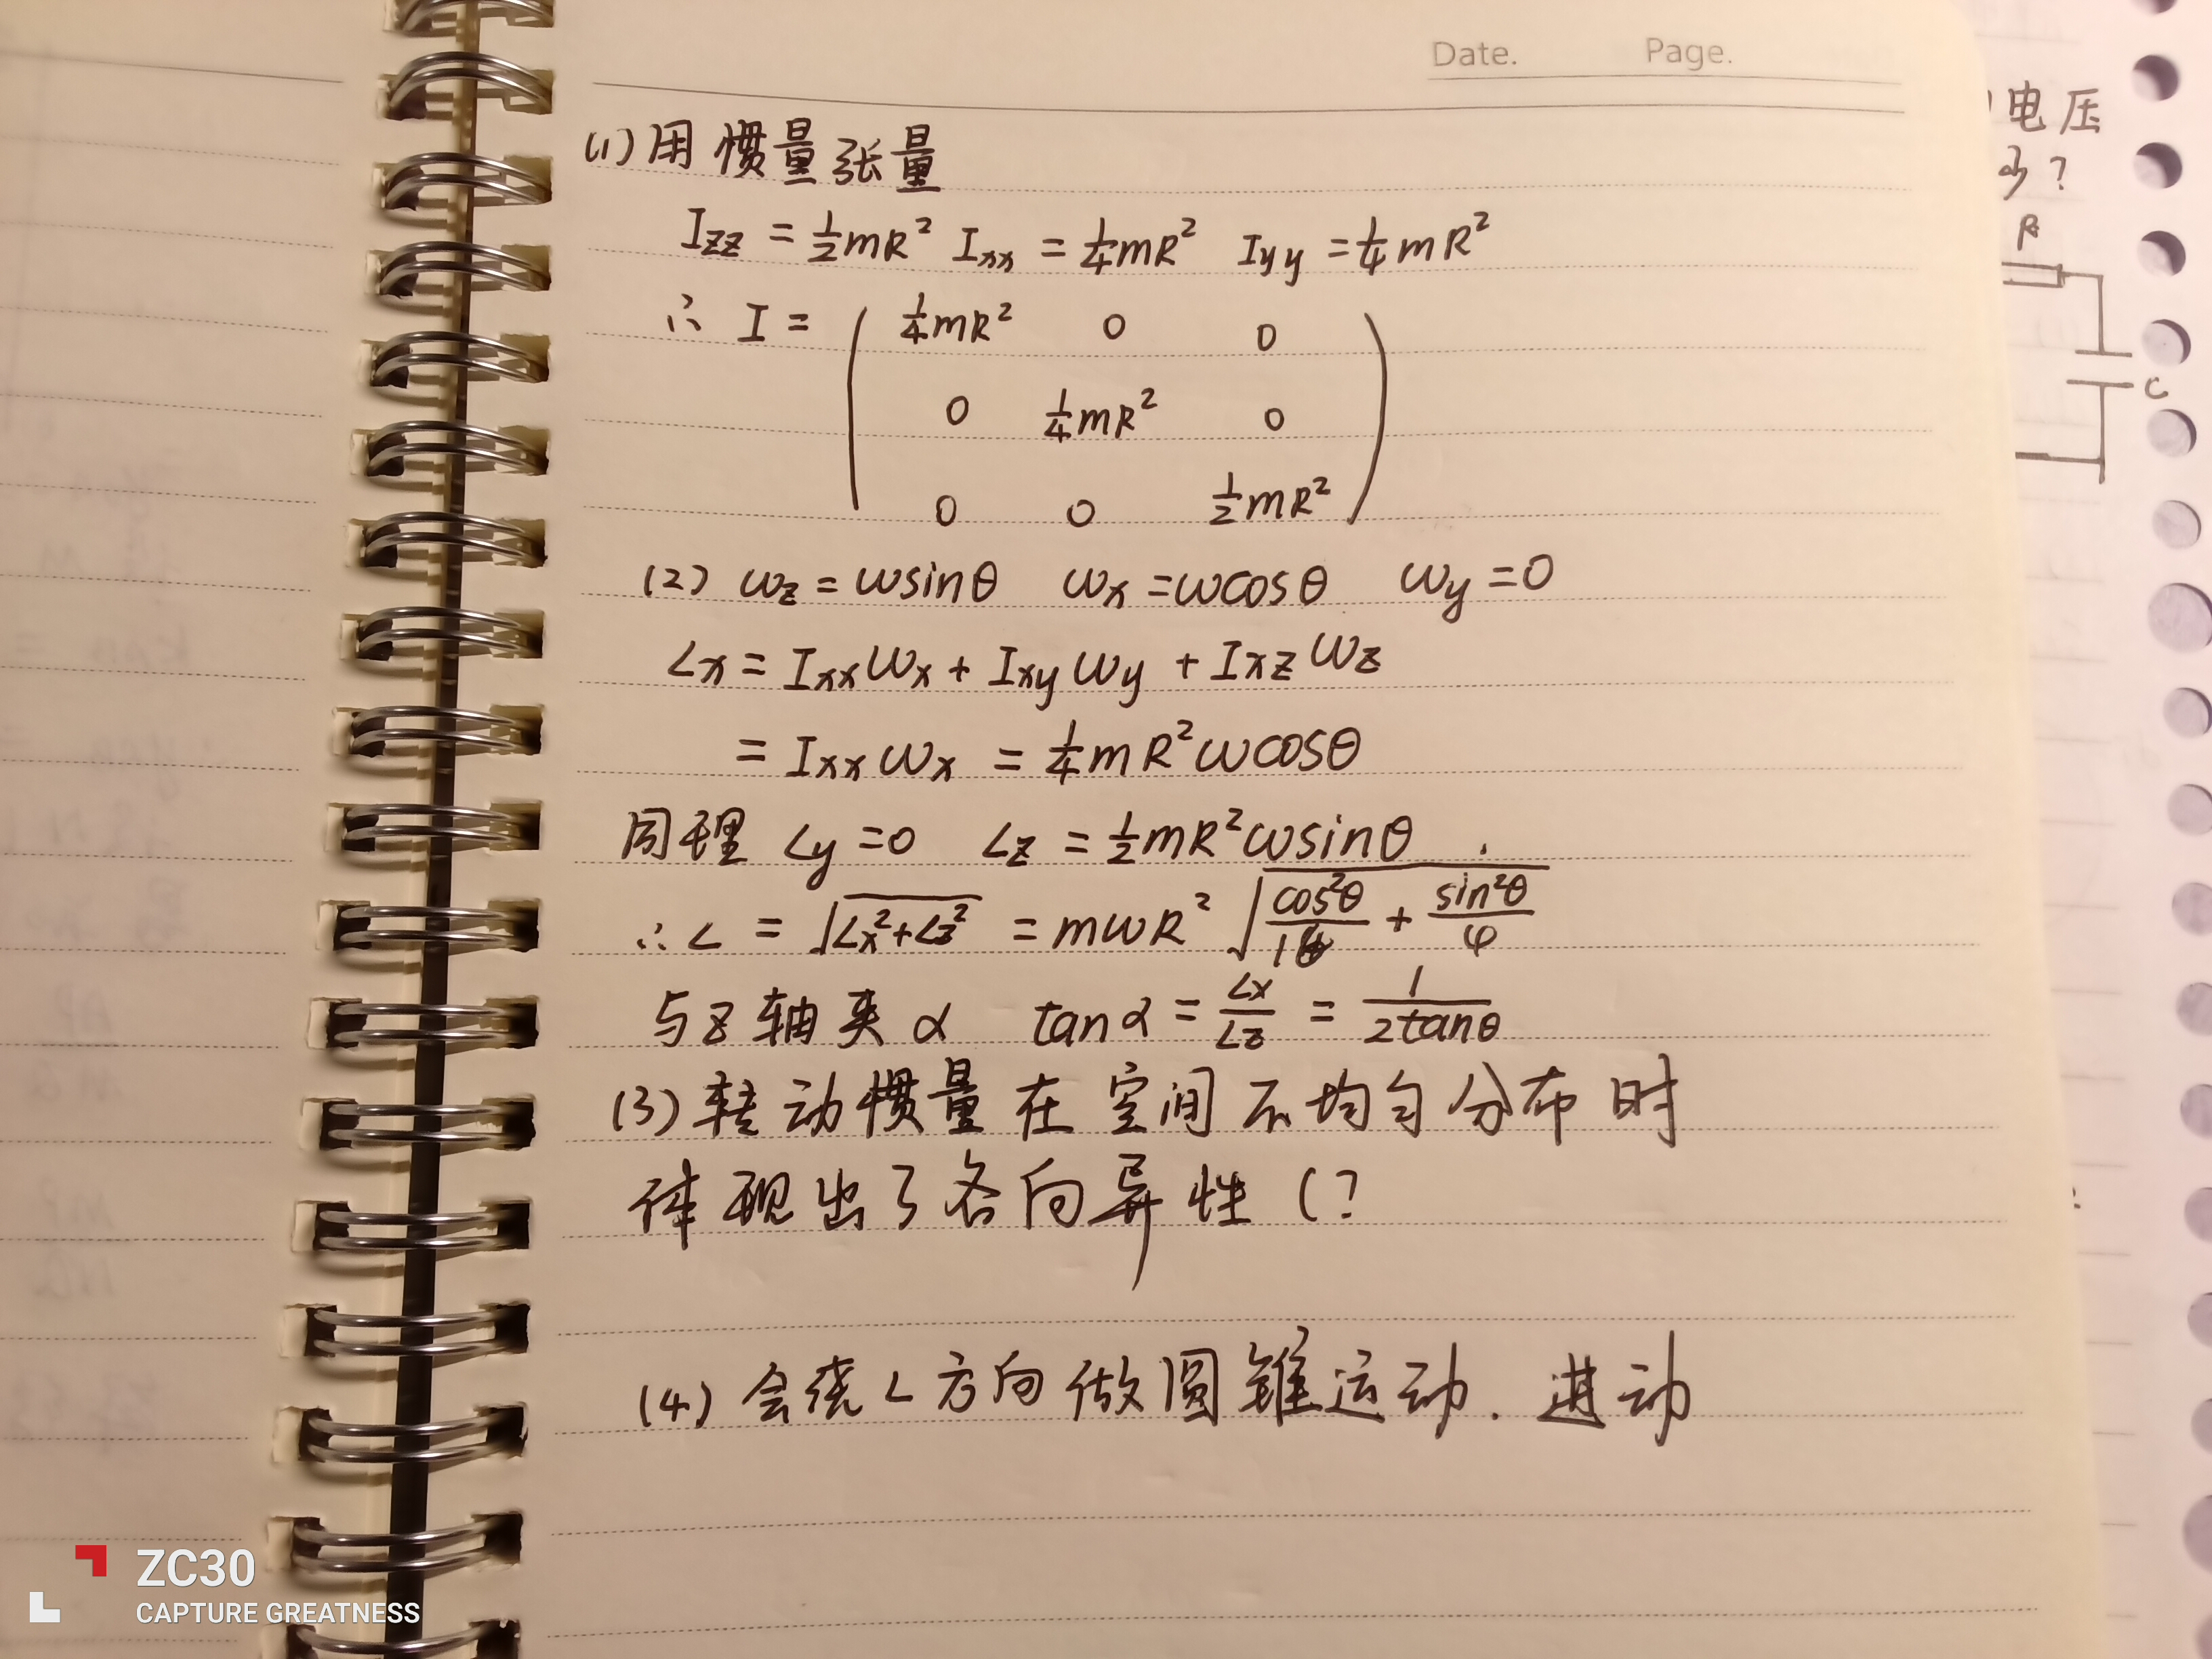 Date. Page.
(1) 用惯量张量
I_{zz} = \frac{1}{2}mR² I_{xx} = \frac{1}{4}mR² I_{yy} = \frac{1}{4}mR²
∴ I = ( \frac{1}{4}mR² 0 0
0 \frac{1}{4}mR² 0
0 0 \frac{1}{2}mR² )
(2) ω_z = ωsinθ ω_x = ωcosθ ω_y = 0
L_x = I_{xx}ω_x + I_{xy}ω_y + I_{xz}ω_z
= I_{xx}ω_x = \frac{1}{4}mR²ωcosθ
同理 L_y = 0 L_z = \frac{1}{2}mR²ωsinθ
∴ L = \sqrt{L_x²+L_z²} = mωR² \sqrt{\frac{cos²θ}{16} + \frac{sin²θ}{4}}
与z轴夹α tanα = \frac{L_x}{L_z} = \frac{1}{2tanθ}
(3) 转动惯量在空间不均匀分布时
体现出了各向异性(?
(4) 会绕L方向做圆锥运动. 进动
电压
?
R
C
ZC30
CAPTURE GREATNESS